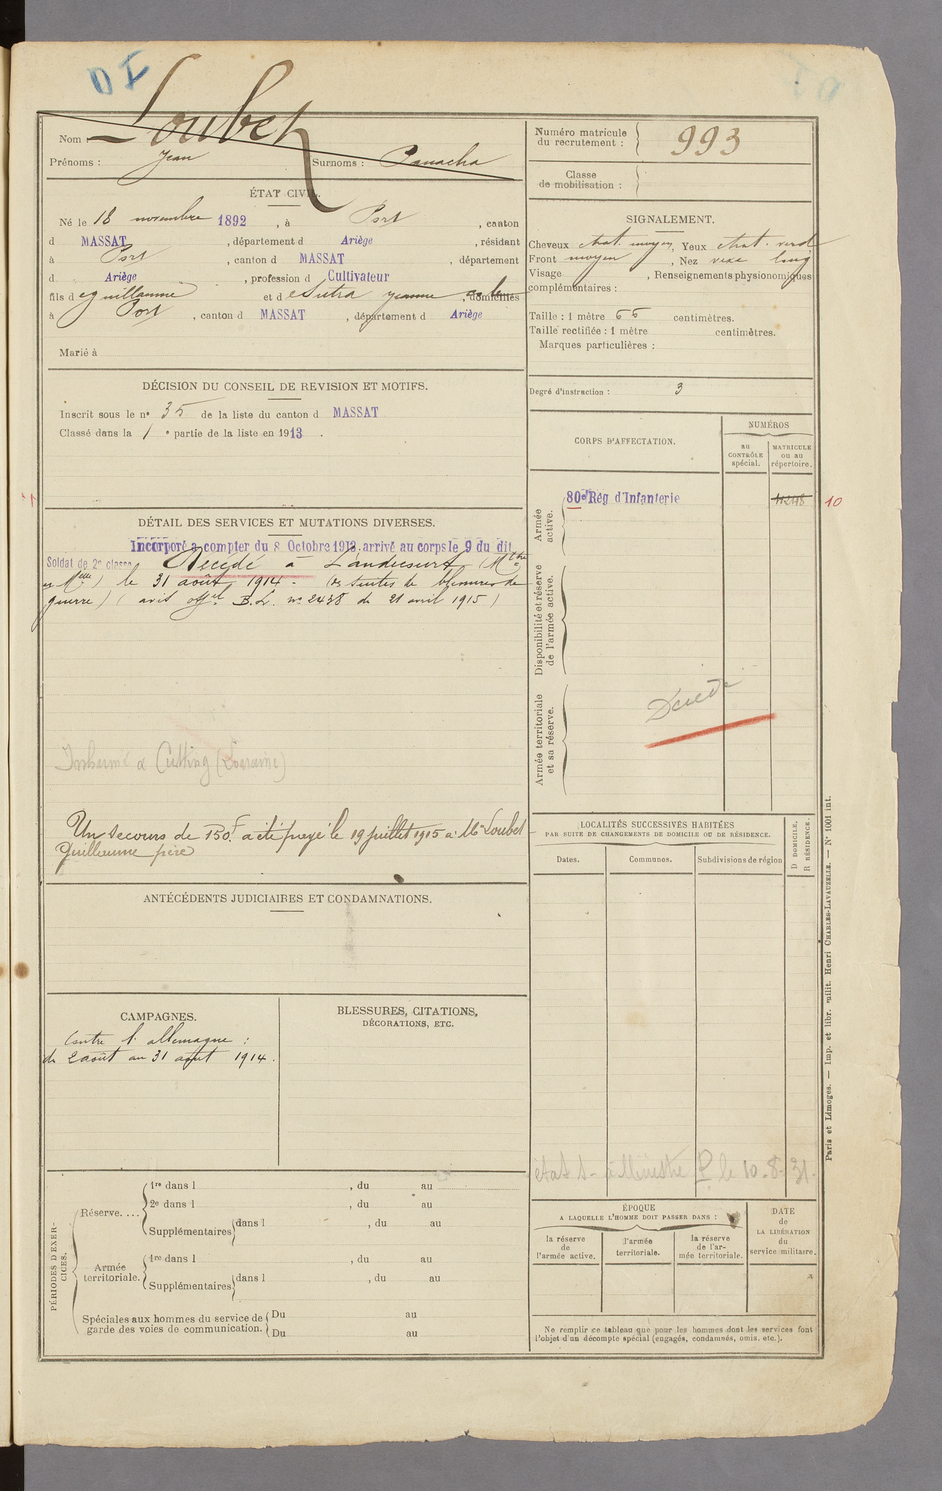 DI
Nom : Loubet
Prénoms : Jean Surnoms : Panacha
Numéro matricule du recrutement : 993
Classe de mobilisation :
ÉTAT CIVIL
Né le 18 novembre 1892, à Port, canton
d MASSAT, département d Ariège, résidant
à Port, canton d MASSAT, département
d Ariège, profession d Cultivateur
fils de guillaume et de Sutra jeanne, domiciliés
à Port, canton d MASSAT, département d Ariège
Marié à
SIGNALEMENT.
Cheveux chat. moyen, Yeux chat. verd
Front moyen, Nez vexe long
Visage , Renseignements physionomiques
complémentaires :
Taille : 1 mètre 66 centimètres.
Taille rectifiée : 1 mètre centimètres.
Marques particulières :
Degré d'instruction : 3
DÉCISION DU CONSEIL DE REVISION ET MOTIFS.
Inscrit sous le n° 35 de la liste du canton d MASSAT
Classé dans la 1e partie de la liste en 1913.
CORPS D'AFFECTATION.
NUMÉROS
au CONTRÔLE spécial.
MATRICULE ou au répertoire.
Armée active.
80e Rég d'Infanterie
10
Disponibilité et réserve de l'armée active.
Armée territoriale et sa réserve.
Décédé
DÉTAIL DES SERVICES ET MUTATIONS DIVERSES.
Incorporé à compter du 8 Octobre 1913 arrivé au corps le 9 du dit
Soldat de 2e classe Décédé à Landicourt (Mthe
et Mlle) le 31 août 1914. (des suites de blessures de
guerre) (avis offel B.L. n° 2438 du 21 avril 1915)
Inhumé à Cutting (Lorraine)
Un secours de 150f a été payé le 19 juillet 1915 à Mr Loubet
Guillaume père
LOCALITÉS SUCCESSIVES HABITÉES
PAR SUITE DE CHANGEMENTS DE DOMICILE OU DE RÉSIDENCE.
Dates. Communes. Subdivisions de région
D DOMICILE, R RÉSIDENCE.
ANTÉCÉDENTS JUDICIAIRES ET CONDAMNATIONS.
CAMPAGNES.
Contre l'allemagne :
du 2 août au 31 août 1914.
BLESSURES, CITATIONS,
DÉCORATIONS, ETC.
le 10-8-31.
PÉRIODES D'EXERCICES.
Réserve....
1re dans l , du au
2e dans l , du au
Supplémentaires dans l , du au
Armée territoriale.
1re dans l , du au
Supplémentaires dans l , du au
Spéciales aux hommes du service de garde des voies de communication.
Du au
Du au
ÉPOQUE
A LAQUELLE L'HOMME DOIT PASSER DANS :
la réserve de l'armée active.
l'armée territoriale.
la réserve de l'armée territoriale.
DATE de LA LIBÉRATION du service militaire.
Ne remplir ce tableau que pour les hommes dont les services font
l'objet d'un décompte spécial (engagés, condamnés, omis, etc.).
Paris et Limoges. — Imp. et libr. milit. Henri CHARLES-LAVAUZELLE. — N° 1001 int.